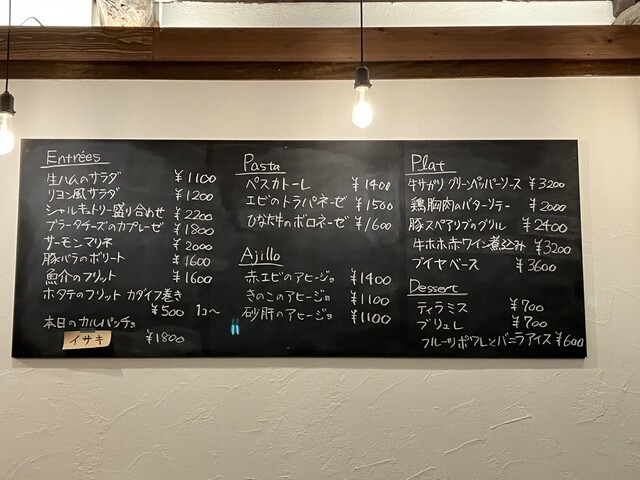 Entrées
生ハムのサラダ ¥1100
リヨン風サラダ ¥1200
シャルキュトリー盛り合わせ ¥2200
ブラータチーズのカプレーゼ ¥1800
サーモンマリネ ¥2000
豚バラのポリート ¥1600
魚介のフリット ¥1600
ホタテのフリット カダイフ巻き
¥500 1コ〜
本日のカルパッチョ
イサキ ¥1800
Pasta
ペスカトーレ ¥1400
エビのトラパネーゼ ¥1500
ひなた牛のボロネーゼ ¥1600
Ajillo
赤エビのアヒージョ ¥1400
きのこのアヒージョ ¥1100
砂肝のアヒージョ ¥1100
Plat
牛サガリ グリーンペッパーソース ¥3200
鶏胸肉のバターソテー ¥2000
豚スペアリブのグリル ¥2400
牛ホホ赤ワイン煮込み ¥3200
ブイヤベース ¥3600
Dessert
ティラミス ¥700
ブリュレ ¥700
フルーツポワレとバニラアイス ¥600